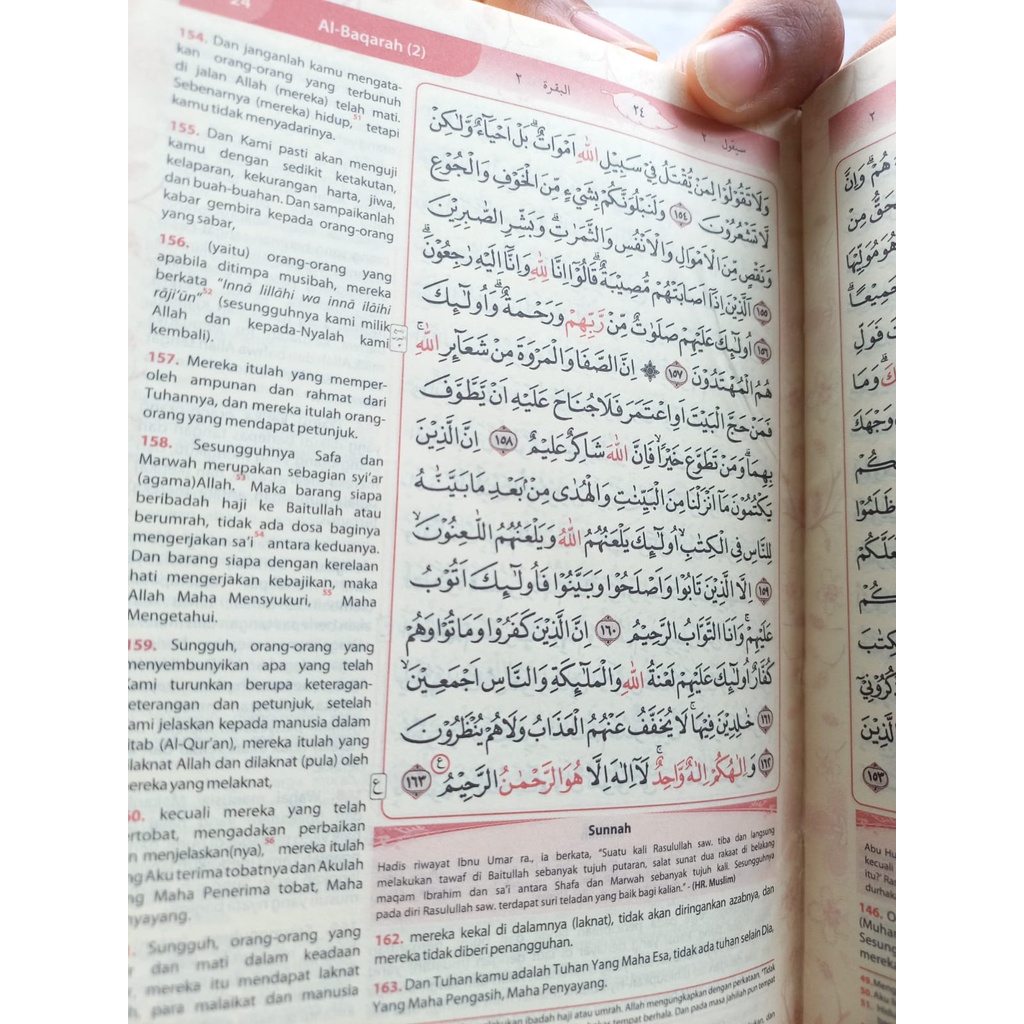 24
Al-Baqarah (2)
154. Dan janganlah kamu mengata-
kan orang-orang yang terbunuh
di jalan Allah (mereka) telah mati.
Sebenarnya (mereka) hidup,51 tetapi
kamu tidak menyadarinya.
155. Dan Kami pasti akan menguji
kamu dengan sedikit ketakutan,
kelaparan, kekurangan harta, jiwa,
dan buah-buahan. Dan sampaikanlah
kabar gembira kepada orang-orang
yang sabar,
156. (yaitu) orang-orang yang
apabila ditimpa musibah, mereka
berkata "Innā lillāhi wa innā ilaihi
rāji'ūn"52 (sesungguhnya kami milik
Allah dan kepada-Nyalah kami
kembali).
157. Mereka itulah yang memper-
oleh ampunan dan rahmat dari
Tuhannya, dan mereka itulah orang-
orang yang mendapat petunjuk.
158. Sesungguhnya Safa dan
Marwah merupakan sebagian syi'ar
(agama)Allah.53 Maka barang siapa
beribadah haji ke Baitullah atau
berumrah, tidak ada dosa baginya
mengerjakan sa'i54 antara keduanya.
Dan barang siapa dengan kerelaan
hati mengerjakan kebajikan, maka
Allah Maha Mensyukuri,55 Maha
Mengetahui.
159. Sungguh, orang-orang yang
menyembunyikan apa yang telah
Kami turunkan berupa keteragan-
keterangan dan petunjuk, setelah
kami jelaskan kepada manusia dalam
kitab (Al-Qur'an), mereka itulah yang
dilaknat Allah dan dilaknat (pula) oleh
mereka yang melaknat,
160. kecuali mereka yang telah
bertobat, mengadakan perbaikan
dan menjelaskan(nya),56 mereka itulah
yang Aku terima tobatnya dan Akulah
Yang Maha Penerima tobat, Maha
Penyayang.
Sungguh, orang-orang yang
dan mati dalam keadaan
mereka itu mendapat laknat
para malaikat dan manusia
البقرة ٢
٢٤
سيقول ٢
وَلَا تَقُوْلُوْا لِمَنْ يُّقْتَلُ فِيْ سَبِيْلِ اللّٰهِ اَمْوَاتٌ ۗ بَلْ اَحْيَاۤءٌ وَّلٰكِنْ
لَّا تَشْعُرُوْنَ ١٥٤ وَلَنَبْلُوَنَّكُمْ بِشَيْءٍ مِّنَ الْخَوْفِ وَالْجُوْعِ
وَنَقْصٍ مِّنَ الْاَمْوَالِ وَالْاَنْفُسِ وَالثَّمَرٰتِ ۗ وَبَشِّرِ الصّٰبِرِيْنَ
١٥٥ اَلَّذِيْنَ اِذَآ اَصَابَتْهُمْ مُّصِيْبَةٌ ۗ قَالُوْٓا اِنَّا لِلّٰهِ وَاِنَّآ اِلَيْهِ رٰجِعُوْنَ ۗ
١٥٦ اُولٰۤىِٕكَ عَلَيْهِمْ صَلَوٰتٌ مِّنْ رَّبِّهِمْ وَرَحْمَةٌ ۗ وَاُولٰۤىِٕكَ
هُمُ الْمُهْتَدُوْنَ ١٥٧ ۞ اِنَّ الصَّفَا وَالْمَرْوَةَ مِنْ شَعَاۤىِٕرِ اللّٰهِ ۚ
فَمَنْ حَجَّ الْبَيْتَ اَوِ اعْتَمَرَ فَلَا جُنَاحَ عَلَيْهِ اَنْ يَّطَّوَّفَ
بِهِمَا ۗ وَمَنْ تَطَوَّعَ خَيْرًاۙ فَاِنَّ اللّٰهَ شَاكِرٌ عَلِيْمٌ ١٥٨ اِنَّ الَّذِيْنَ
يَكْتُمُوْنَ مَآ اَنْزَلْنَا مِنَ الْبَيِّنٰتِ وَالْهُدٰى مِنْۢ بَعْدِ مَا بَيَّنّٰهُ
لِلنَّاسِ فِى الْكِتٰبِۙ اُولٰۤىِٕكَ يَلْعَنُهُمُ اللّٰهُ وَيَلْعَنُهُمُ اللّٰعِنُوْنَۙ
١٥٩ اِلَّا الَّذِيْنَ تَابُوْا وَاَصْلَحُوْا وَبَيَّنُوْا فَاُولٰۤىِٕكَ اَتُوْبُ
عَلَيْهِمْ ۚ وَاَنَا التَّوَّابُ الرَّحِيْمُ ١٦٠ اِنَّ الَّذِيْنَ كَفَرُوْا وَمَاتُوْا وَهُمْ
كُفَّارٌ اُولٰۤىِٕكَ عَلَيْهِمْ لَعْنَةُ اللّٰهِ وَالْمَلٰۤىِٕكَةِ وَالنَّاسِ اَجْمَعِيْنَۙ
١٦١ خٰلِدِيْنَ فِيْهَا ۚ لَا يُخَفَّفُ عَنْهُمُ الْعَذَابُ وَلَا هُمْ يُنْظَرُوْنَ
١٦٢ وَاِلٰهُكُمْ اِلٰهٌ وَّاحِدٌۚ لَآ اِلٰهَ اِلَّا هُوَ الرَّحْمٰنُ الرَّحِيْمُ ࣖ ١٦٣
Sunnah
Hadis riwayat Ibnu Umar ra., ia berkata, "Suatu kali Rasulullah saw. tiba dan langsung
melakukan tawaf di Baitullah sebanyak tujuh putaran, salat sunat dua rakaat di belakang
maqam Ibrahim dan sa'i antara Shafa dan Marwah sebanyak tujuh kali. Sesungguhnya
pada diri Rasulullah saw. terdapat suri teladan yang baik bagi kalian." - (HR. Muslim)
162. mereka kekal di dalamnya (laknat), tidak akan diringankan azabnya, dan
mereka tidak diberi penangguhan.
163. Dan Tuhan kamu adalah Tuhan Yang Maha Esa, tidak ada tuhan selain Dia,
Yang Maha Pengasih, Maha Penyayang.
melakukan ibadah haji atau umrah. Allah mengungkapkan dengan perkataan, "Tidak
tempat berhala. Dan pada masa jahiliah pun tempat